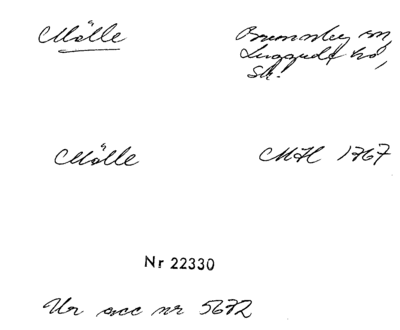 Mölle
Brunnby sn,
Luggude hd,
Sk.
Mölle MH 1767
Nr 22330
Ur acc nr 5672